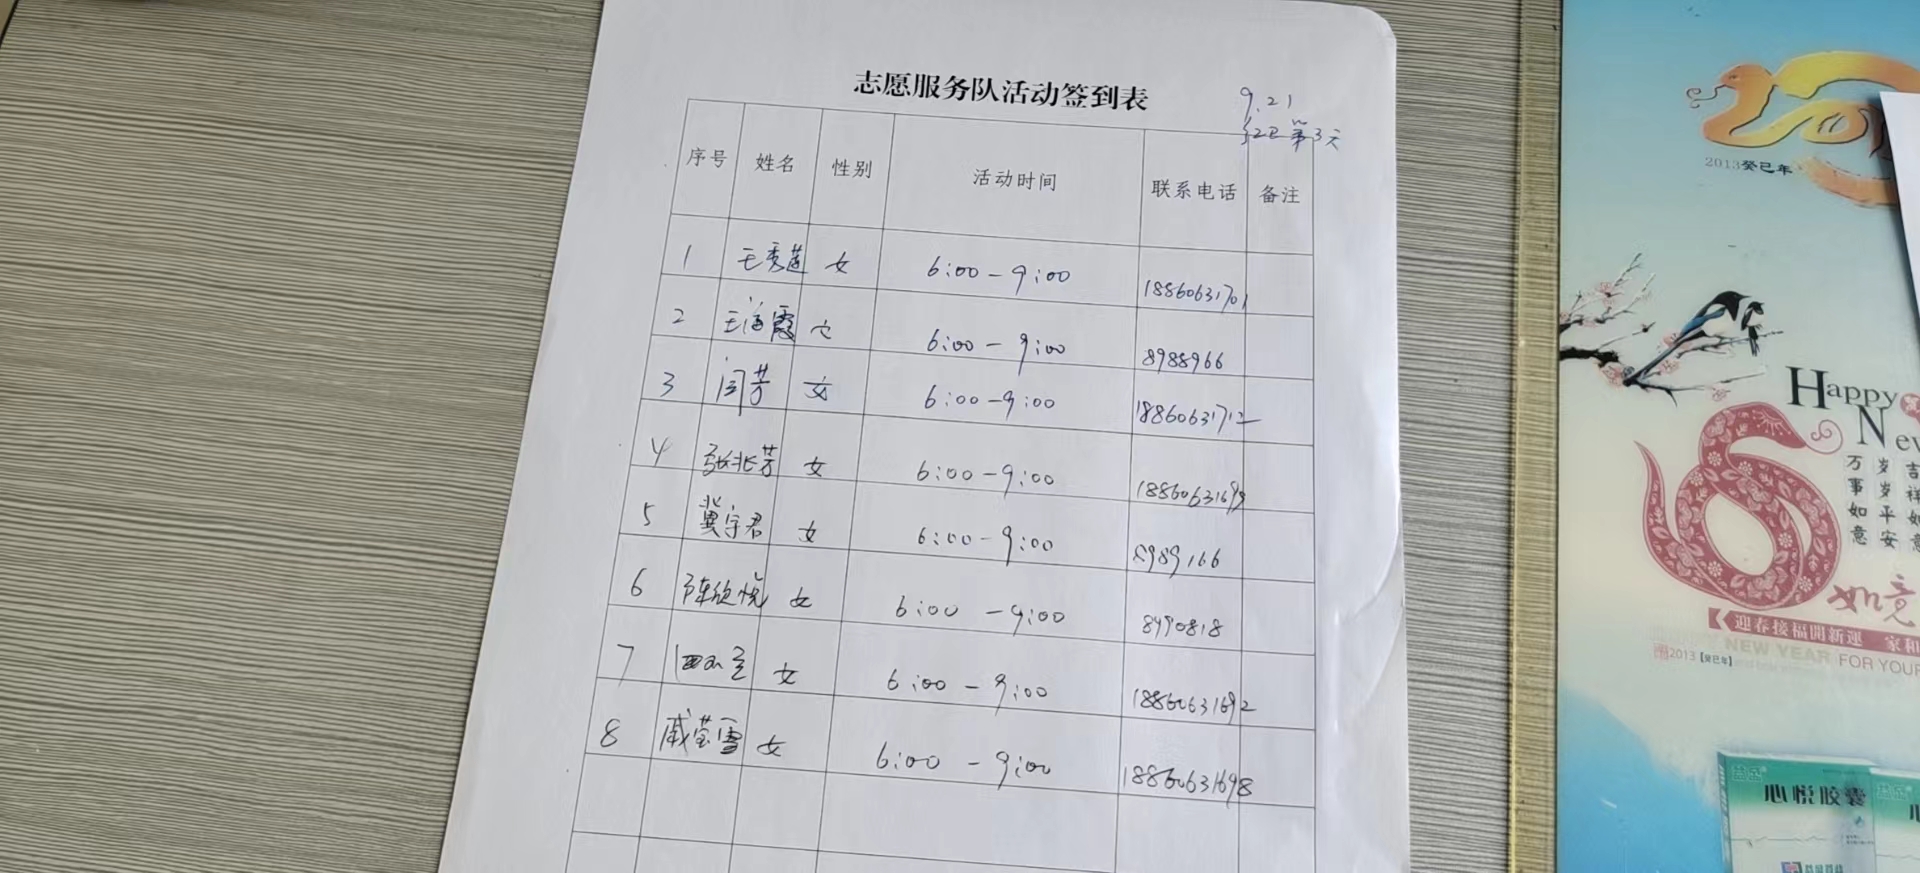 志愿服务队活动签到表
9.21
第3天
序号 姓名 性别 活动时间 联系电话 备注
1 王秀莲 女 6:00-9:00 18860631701
2 王海霞 女 6:00-9:00 8988966
3 闫芳 女 6:00-9:00 18860631712
4 张兆芳 女 6:00-9:00 18860631699
5 冀宇君 女 6:00-9:00 8989166
6 陈欣悦 女 6:00-9:00 8490818
7 女 6:00-9:00 18860631692
8 戚莹雪 女 6:00-9:00 18860631698
2013癸巳年
Happy
New
万事如意
岁岁平安
吉祥如意
如意
迎春接福開新運 家和
NEW YEAR FOR YOUR
2013【癸巳年】
心悦胶囊